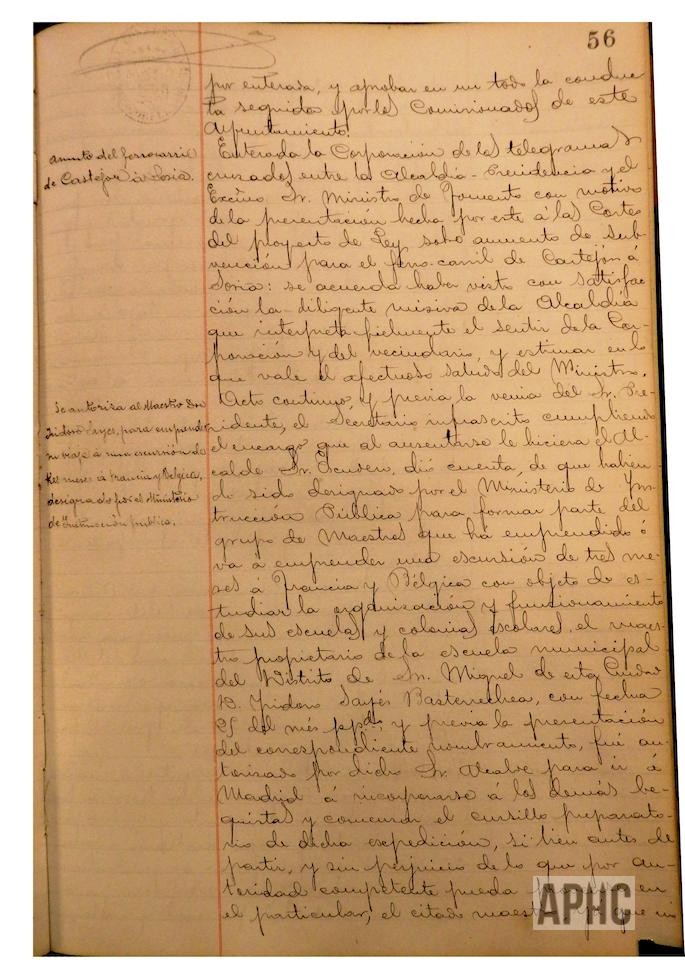 56
por enterada, y aprobar en un todo la conduc
ta seguida por los Comisionados de este
Ayuntamiento.
asunto del ferrocarril
de Castejon á Soria.
Enterada la Corporación de los telegramas
cruzados entre la Alcaldia-Presidencia y el
Excmo Sr. Ministro de Fomento con motivo
de la presentación hecha por este á las Cortes
del proyecto de Ley sobre aumento de sub
vención para el ferro-carril de Castejon á
Soria: se acuerda haber visto con satisfac
ción la diligente misiva de la Alcaldía
que interpreta fielmente el sentir de la Cor-
poración y del vecindario, y estimar en lo
que vale el afectuoso saludo del Ministro.
Se autoriza al Maestro Don
Isidoro Sayés, para emprender
su viaje a una excursión de
tres meses á Francia y Bélgica,
designado por el Ministerio
de Instrucción pública.
Acto continuo, y previa la venia del Sr. Pre-
sidente, el Secretario infrascrito cumpliendo
el encargo que al ausentarse le hiciera el Al-
calde Sr. Escudero, dió cuenta, de que habien-
do sido designado por el Ministerio de Yns
trucción Pública para formar parte del
grupo de Maestros que ha emprendido ó
va á emprender una escursión de tres me-
ses á Francia y Bélgica con objeto de es-
tudiar la organización y funcionamiento
de sus escuelas y colonias escolares, el maes-
tro propietario de la escuela municipal
del Distrito de Sn. Miguel de esta Ciudad
D. Ysidoro Sayés Basterrechea, con fecha
25 del més ppdo. y previa la presentación
del correspondiente nombramiento, fué au-
torizado por dicho Sr. Alcalde para ir á
Madrid á incorporarse á los demás be-
quistas y comenzar el cursillo preparato-
rio de dicha espedición, si bien antes de
partir, y sin perjuicio de lo que por au-
toridad competente pueda en
el particular, el citado maestro que
APHC